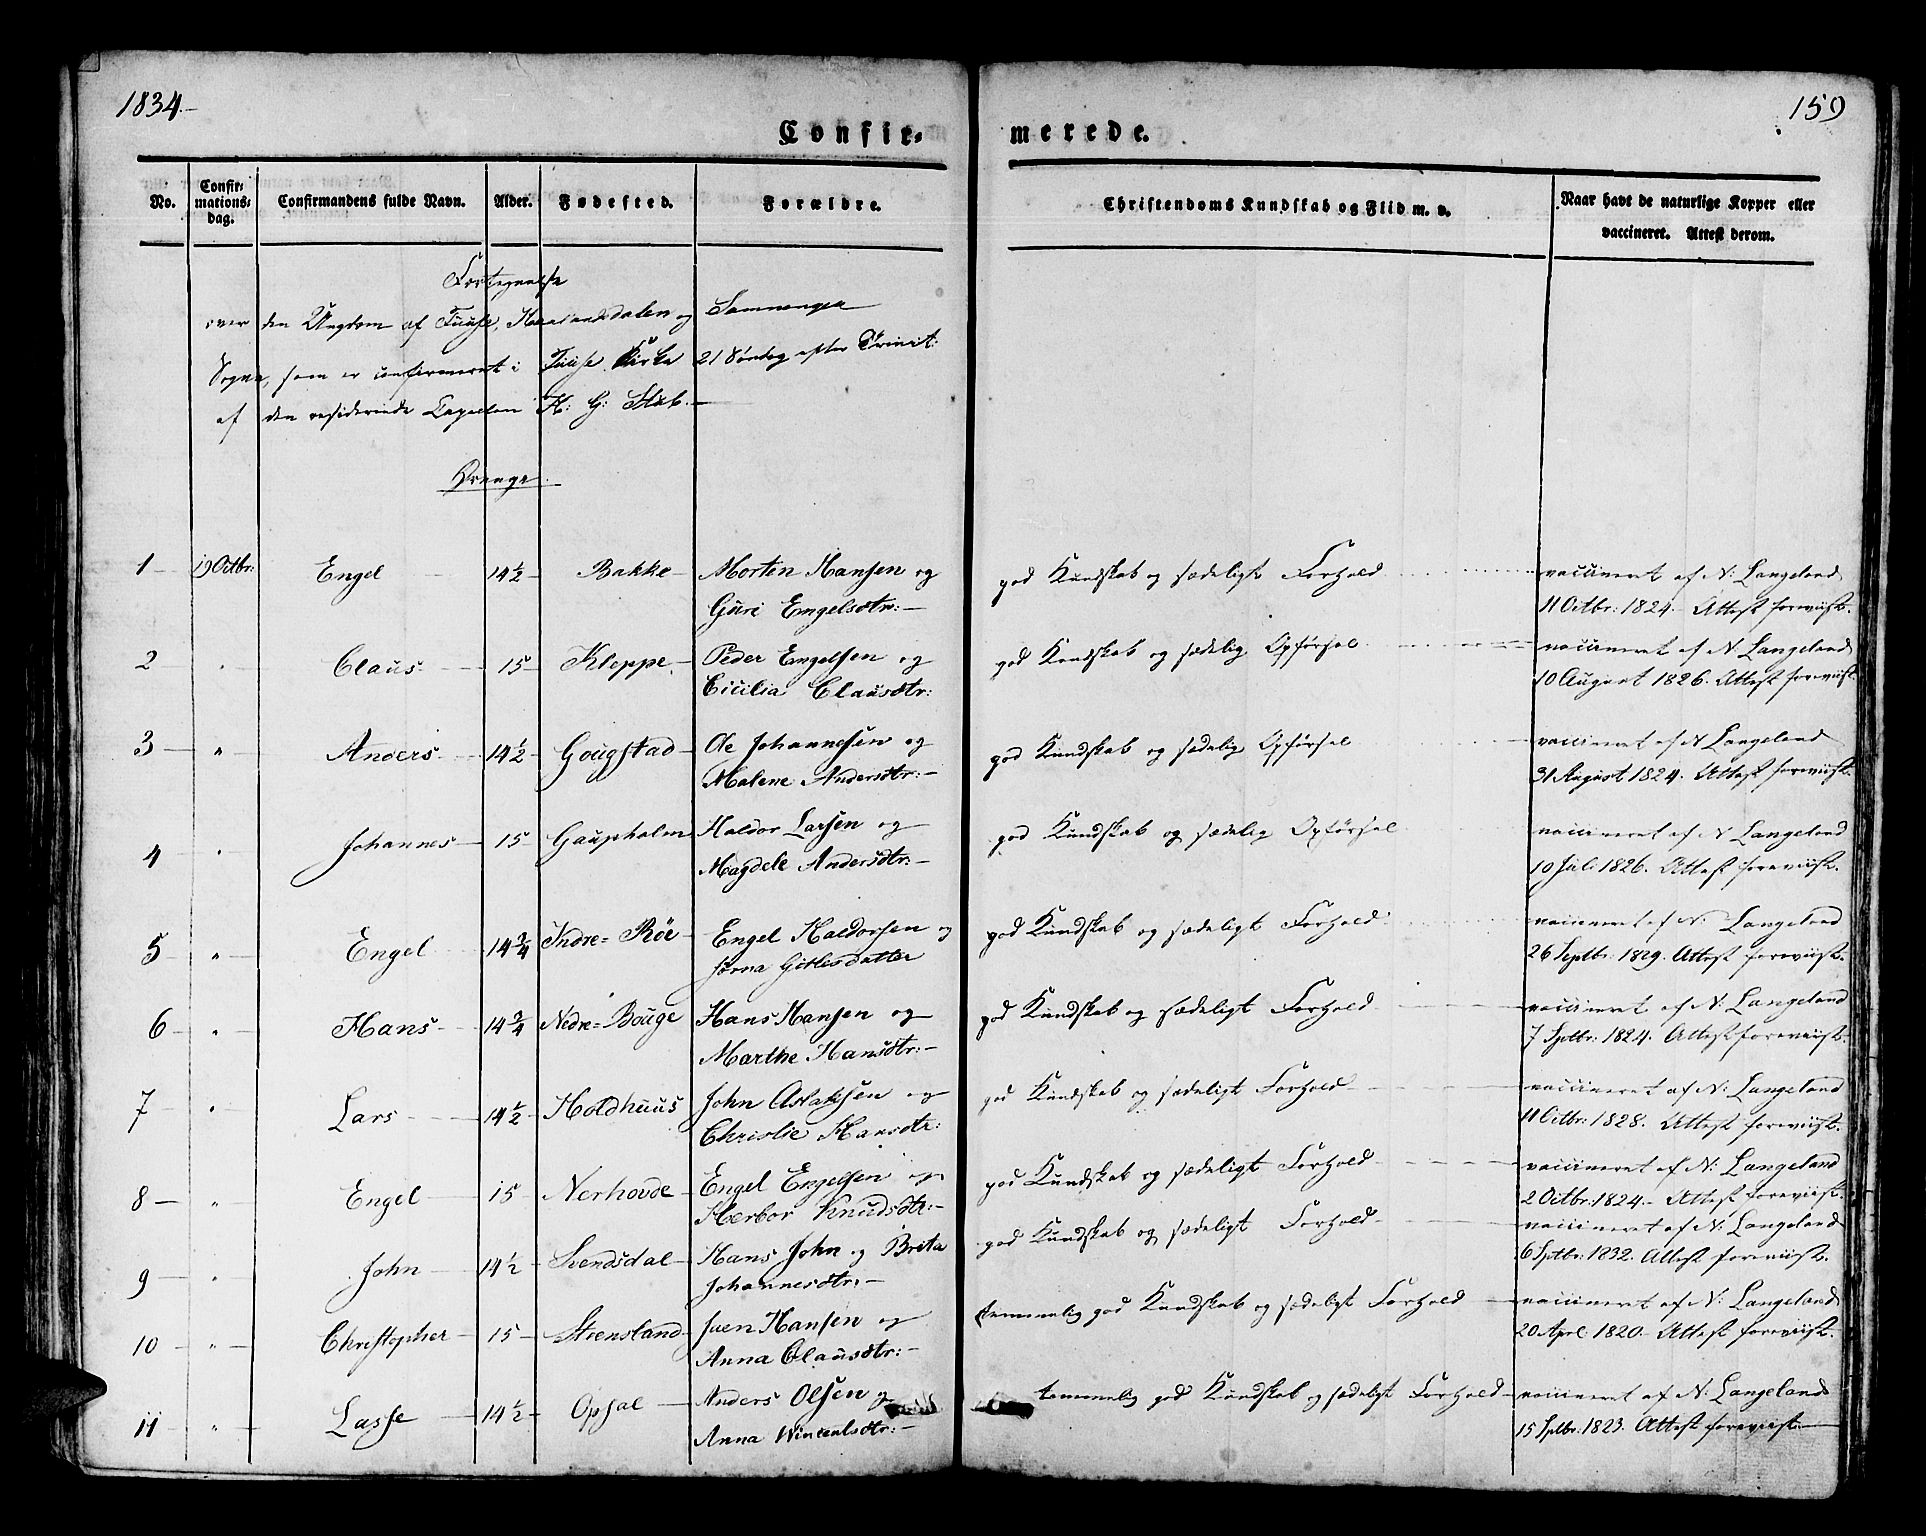 1834.-
159
Confir-
merede.
No.
Confir-
mations-
dag.
Confirmandens fulde Navn.
Alder.
Fødested.
Forældre.
Christendoms Kundskab og Flid m. v.
Naar havt de naturlige Kopper eller
vaccineret. Attest derom.
Fortegnelse
over den Ungdom af Fuuse, Haalandsdalen og Samnanger
Sogne, som er confirmeret i Fuuse Kirke 21 Søndag efter Trinit:
af den residerende Capellan H: G: Stub.-
Drenge.
1 — 19 Octbr: Engel 14½ - Bakke - Morten Hansen og god Kundskab og sædeligt Forhold vaccineret af N: Langeland
Guri Engelsdtr:- 11 Octbr: 1824.- Attest foreviist.
2 " Claus 15 - Kleppe - Peder Engelsen og god Kundskab og sædelig Opførsel vaccineret af N Langeland
Cicilia Clausdtr: 10 August 1826. Attest foreviist.
3 — " — Anders 14½ - Gougstad - Ole Johannesen og god Kundskab og sædelig Opførsel vaccineret af N Langeland
Malene Andersdtr:- 31 August 1824. Attest foreviist.
4 " Johannes - 15 - Gaupholm Haldor Larsen og god Kundskab og sædelig Opførsel vaccineret af N Langeland
Magdele Andersdtr:- 10 Juli 1826. Attest foreviist.
5 — " — Engel 14¾ Indre= Røe - Engel Haldorsen og god Kundskab og sædeligt Forhold vaccineret af N: Langeland
Gitlesdatter 26 Septbr: 1829. Attest foreviist.
6 — " — Hans 14¾ Nedre= Bouge Hans Hansen og god Kundskab og sædeligt Forhold vaccineret af N: Langeland
Marthe Hansdtr:- 7 Sptbr: 1824. Attest foreviist.
7 — " — Lars 14½ - Holdhuus John Aslaksen og god Kundskab og sædeligt Forhold vaccineret af N: Langeland
Christie Hansdtr: 11 Octbr: 1828. Attest foreviist.
8 — " — Engel 15 - Nerhovde - Engel Engelsen og god Kundskab og sædeligt Forhold vaccineret af N: Langeland
Herbor Knudsdtr:- 2 Octbr: 1824.- Attest foreviist.
9 — " — John 14½ - Svendsdal - Hans John og Brita god Kundskab og sædeligt Forhold vaccineret af N: Langeland
Johannesdtr:- 6 Sptbr: 1832. Attest foreviist.
10 — " — Christopher 15 - Strensland - Hansen og temmelig god Kundskab og sædeligt Forhold vaccineret af N: Langeland
Anna Clausdtr:- 20 Aprl 1820.- Attest foreviist.
11 — " — Lasse 14½ - Opsal — Anders Olsen og temmelig god Kundskab og sædeligt Forhold vaccineret af N: Langeland
Anna Vincentsdtr:- 15 Sptbr: 1823. Attest foreviist.